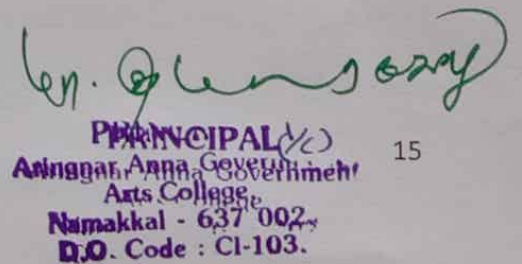 PRINCIPAL (i/c)
15
Aringnar Anna Government
Arts College,
Namakkal - 637 002.
D.O. Code : CI-103.